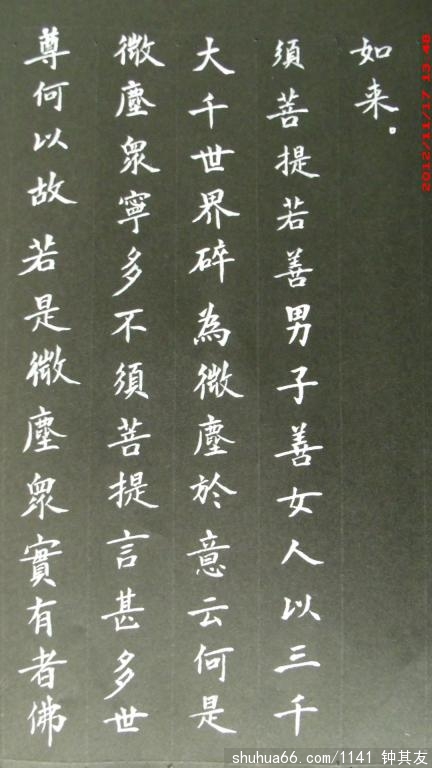 如来。
須菩提若善男子善女人以三千
大千世界碎為微塵於意云何是
微塵衆寧多不須菩提言甚多世
尊何以故若是微塵衆實有者佛
2012/11/17 13:48
shuhua66.com/1141 钟其友